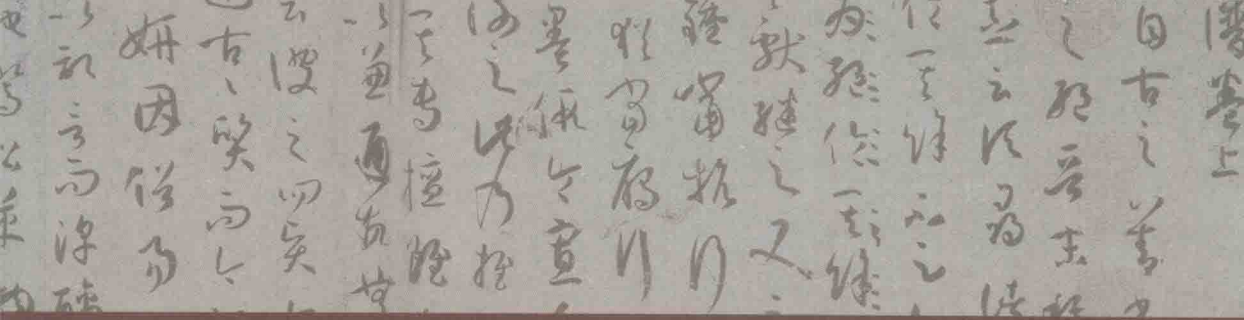 譜卷上
自古之善書
之絕晉末稱
之云頃尋諸
倫其餘不足
為絕倫其餘
獻繼之又
鍾當抗行
猶當雁行
墨假令寡
謝之此乃推
其專擅雖
以兼通故無
云彼之四賢
古古質而今
妍因俗易
以記言而淳醨
騖沿革物